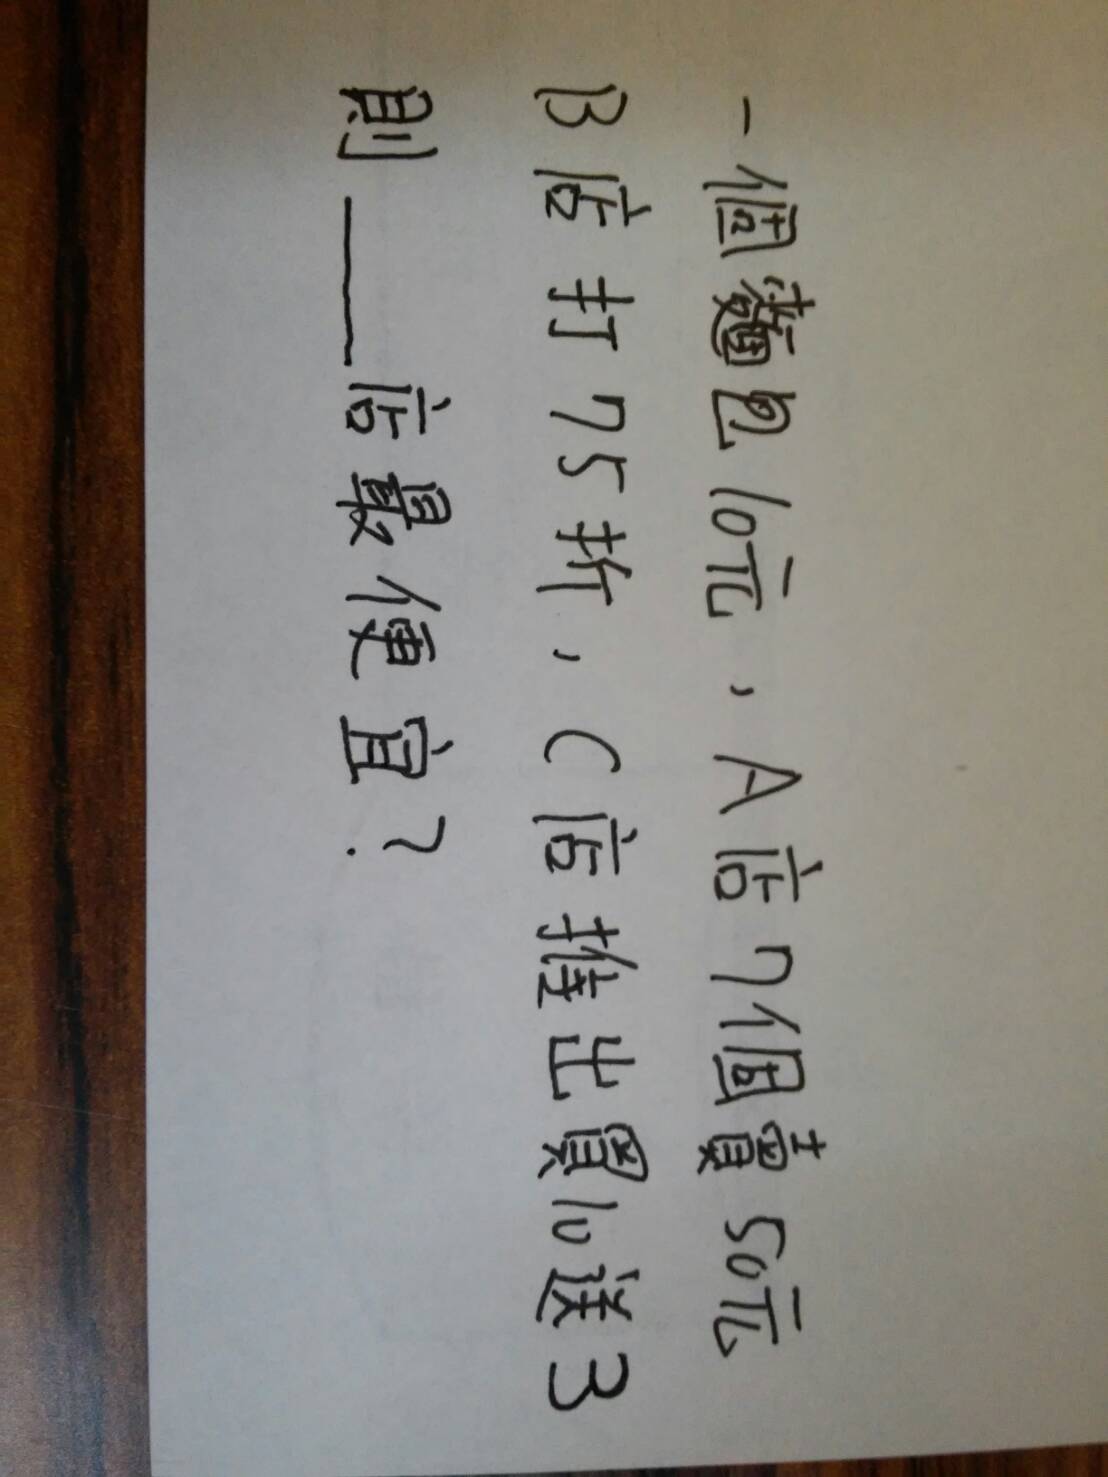 一個麵包10元,A店7個賣50元
B店打75折,C店推出買10送3
則____店最便宜?